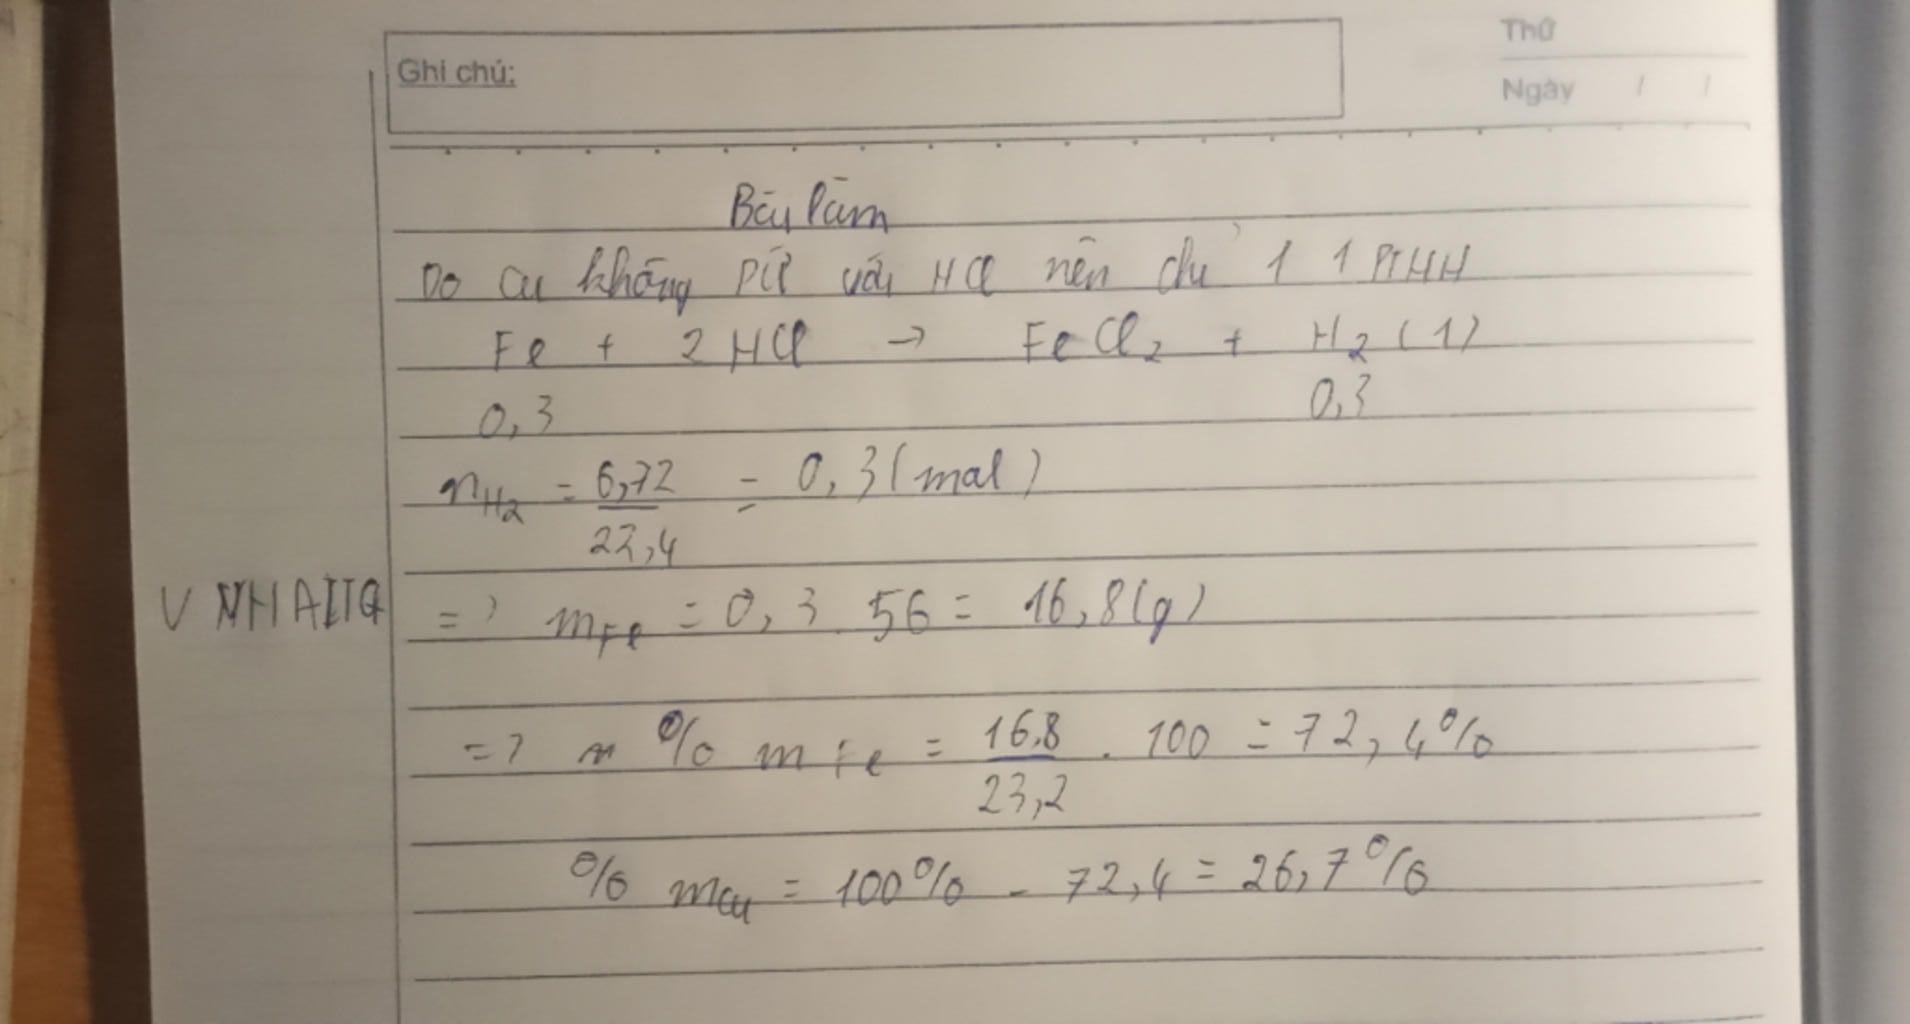 Thứ
Ghi chú:
Ngày / /
Bài làm
Do Cu không PƯ với HCl nên chỉ 1 1 PTHH
Fe + 2 HCl → FeCl₂ + H₂ (1)
0,3 0,3
nH₂ = 6,72/22,4 = 0,3 (mol)
=> mFe = 0,3 . 56 = 16,8 (g)
=> % mFe = 16,8/23,2 . 100 = 72,4%
% mCu = 100% - 72,4 = 26,7%